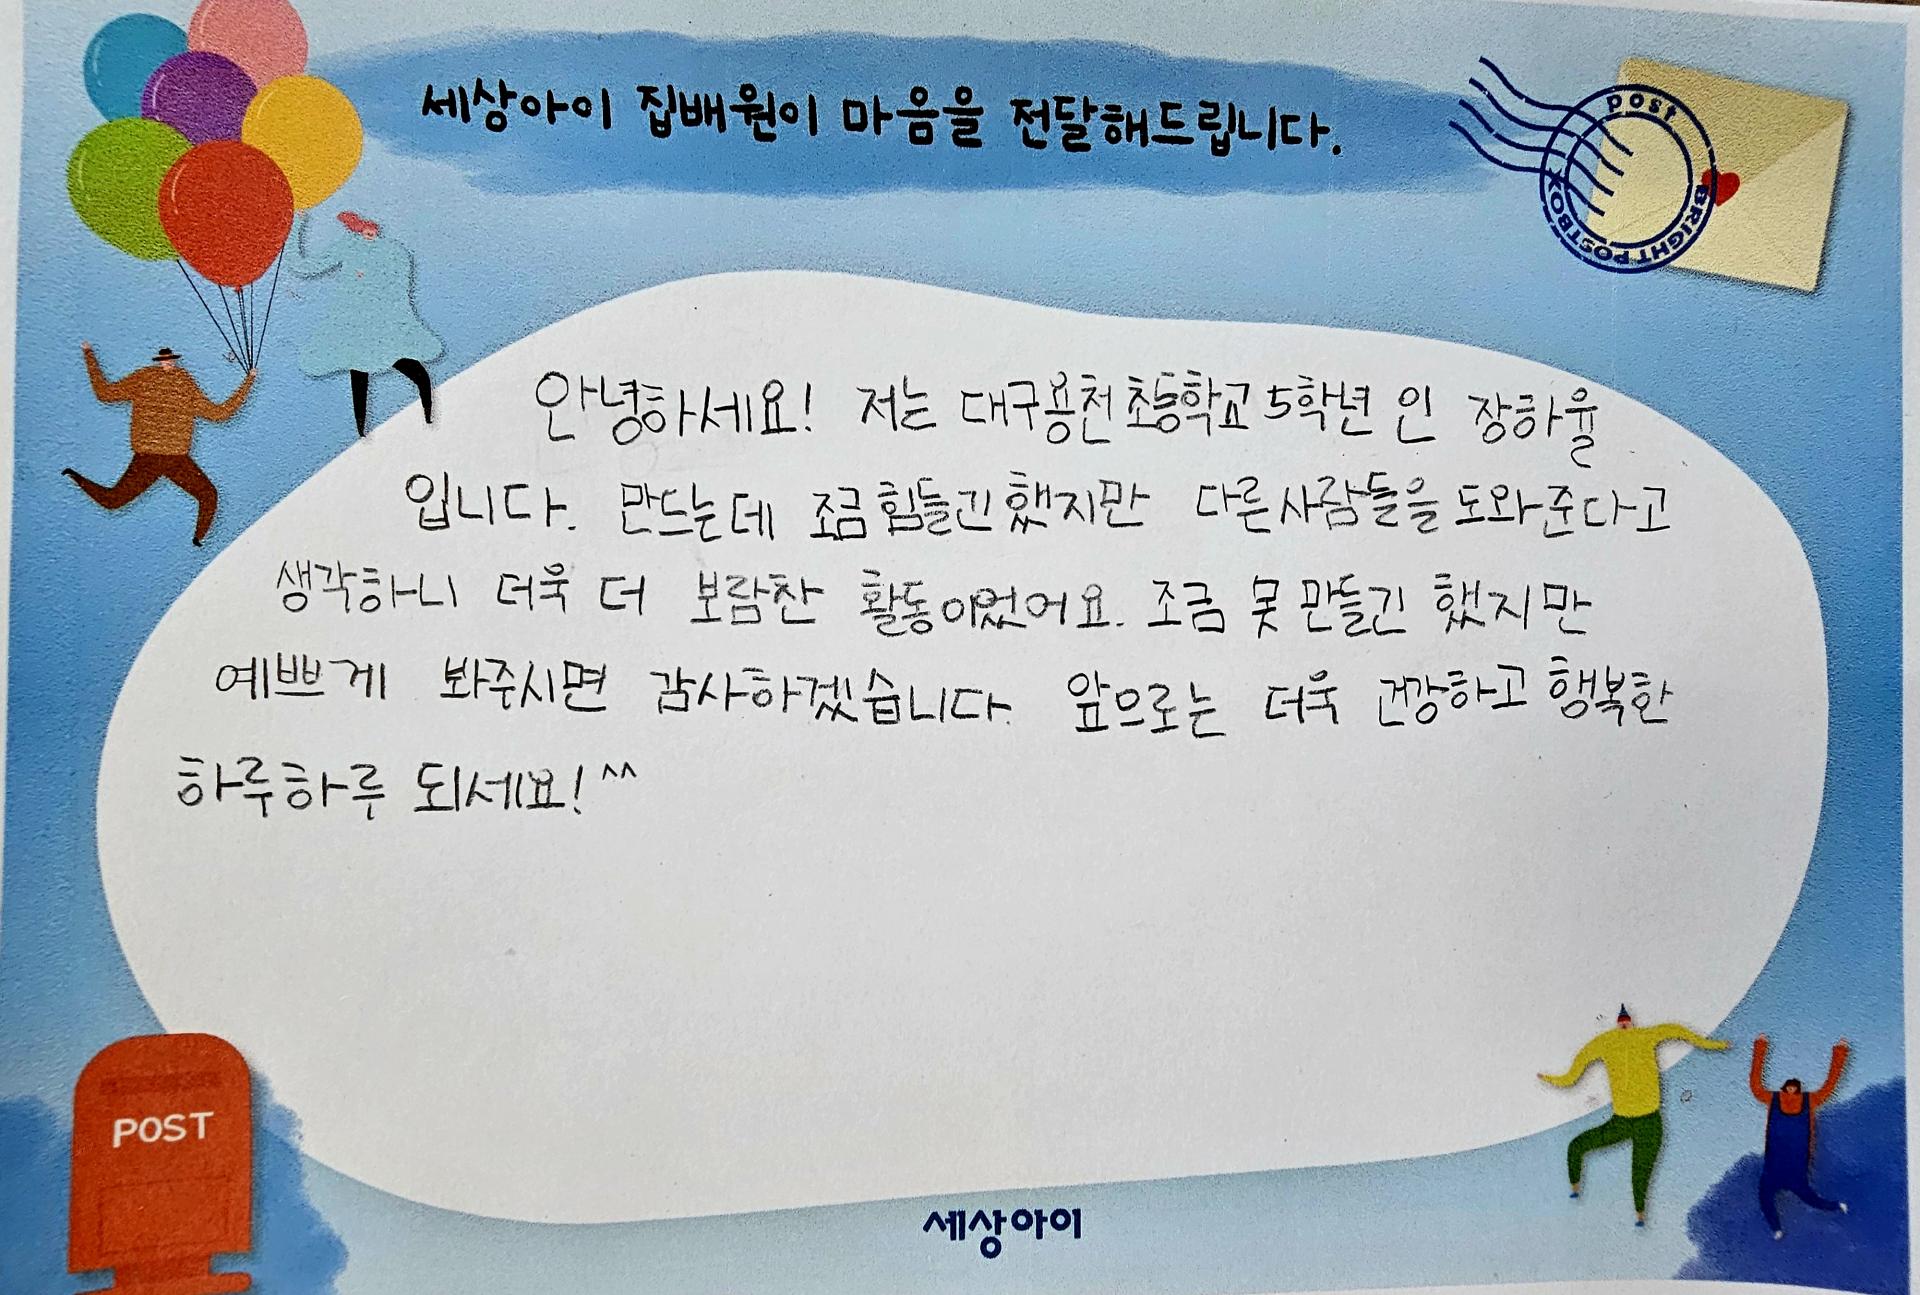 세상아이 집배원이 마음을 전달해드립니다.
post
BRIGHT POSTBOX
안녕하세요! 저는 대구용천초등학교 5학년 인 장하율
입니다. 만드는데 조금 힘들긴 했지만 다른 사람들을 도와준다고
생각하니 더욱 더 보람찬 활동이었어요. 조금 못 만들긴 했지만
예쁘게 봐주시면 감사하겠습니다. 앞으로는 더욱 건강하고 행복한
하루하루 되세요! ^^
POST
세상아이